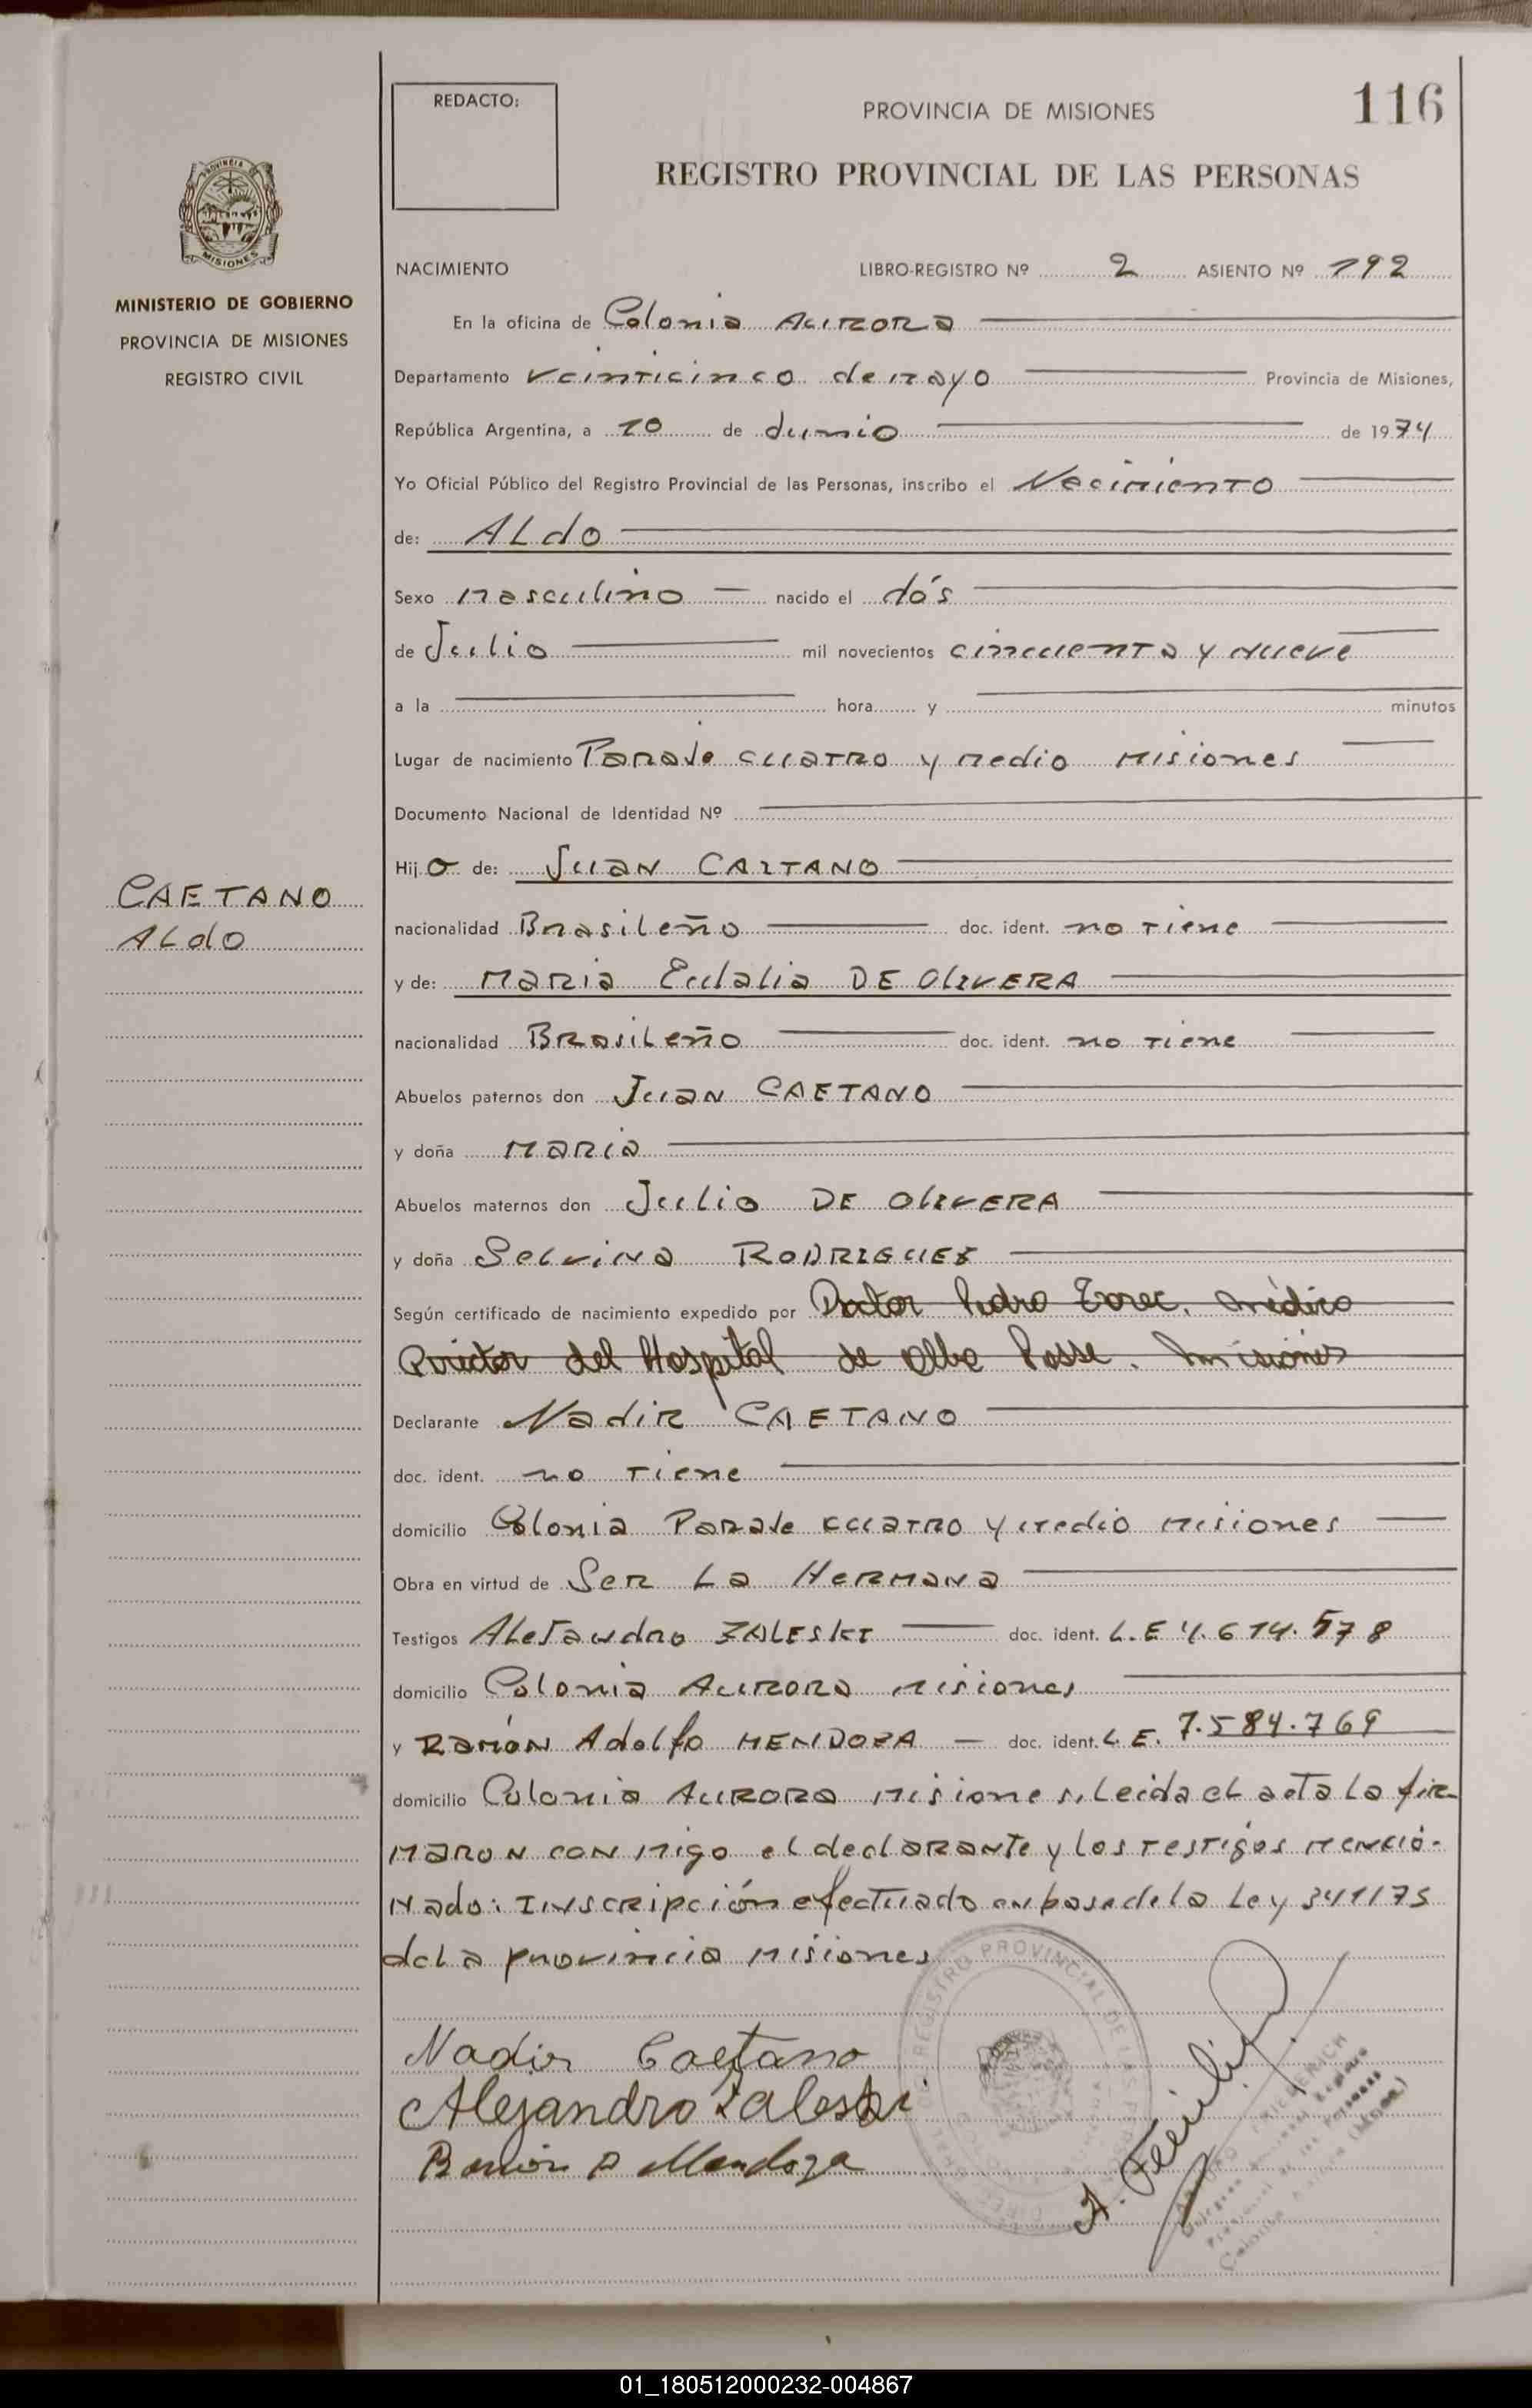 REDACTO:
PROVINCIA DE MISIONES
116
REGISTRO PROVINCIAL DE LAS PERSONAS
PROVINCIA DE
MISIONES
MINISTERIO DE GOBIERNO
PROVINCIA DE MISIONES
REGISTRO CIVIL
NACIMIENTO LIBRO-REGISTRO Nº 2 ASIENTO Nº 192
En la oficina de Colonia AURORA
Departamento Veinticinco de mayo Provincia de Misiones,
República Argentina, a 10 de Junio de 1974
Yo Oficial Público del Registro Provincial de las Personas, inscribo el Nacimiento
de: ALdo
Sexo masculino nacido el dós
de Julio mil novecientos cincuenta y nueve
a la hora y minutos
Lugar de nacimiento Paraje cuatro y medio misiones
Documento Nacional de Identidad Nº
Hijo de: Juan CAETANO
CAETANO
ALdo
nacionalidad Brasileño doc. ident. no tiene
y de: MARIA Eulalia DE OlivERA
nacionalidad BRasiLeño doc. ident. no tiene
Abuelos paternos don Juan CAETANO
y doña MARIA
Abuelos maternos don Julio DE OlivERA
y doña Selvina RODRIGUEZ
Según certificado de nacimiento expedido por Doctor Pedro médico
Director del Hospital de Alba Posse. Misiones
Declarante Nadir CAETANO
doc. ident. no tiene
domicilio Colonia Paraje cuatro y medio misiones
Obra en virtud de Ser La Hermana
Testigos Alejandro ZALESKI doc. ident. L.E 4.614.578
domicilio Colonia AURORA misiones
y Ramón Adolfo MENDOZA doc. ident. L.E. 7.584.769
domicilio Colonia AURORA misiones, Leida el acta La fir-
maron con migo el declarante y los testigos mencio-
nado: Inscripción efectuado en base de la Ley 341/75
de La provincia misiones
Nadir Caetano
Alejandro Zaleski
Ramón A Mendoza
REGISTRO PROVINCIAL DE LAS PERSONAS
01_180512000232-004867